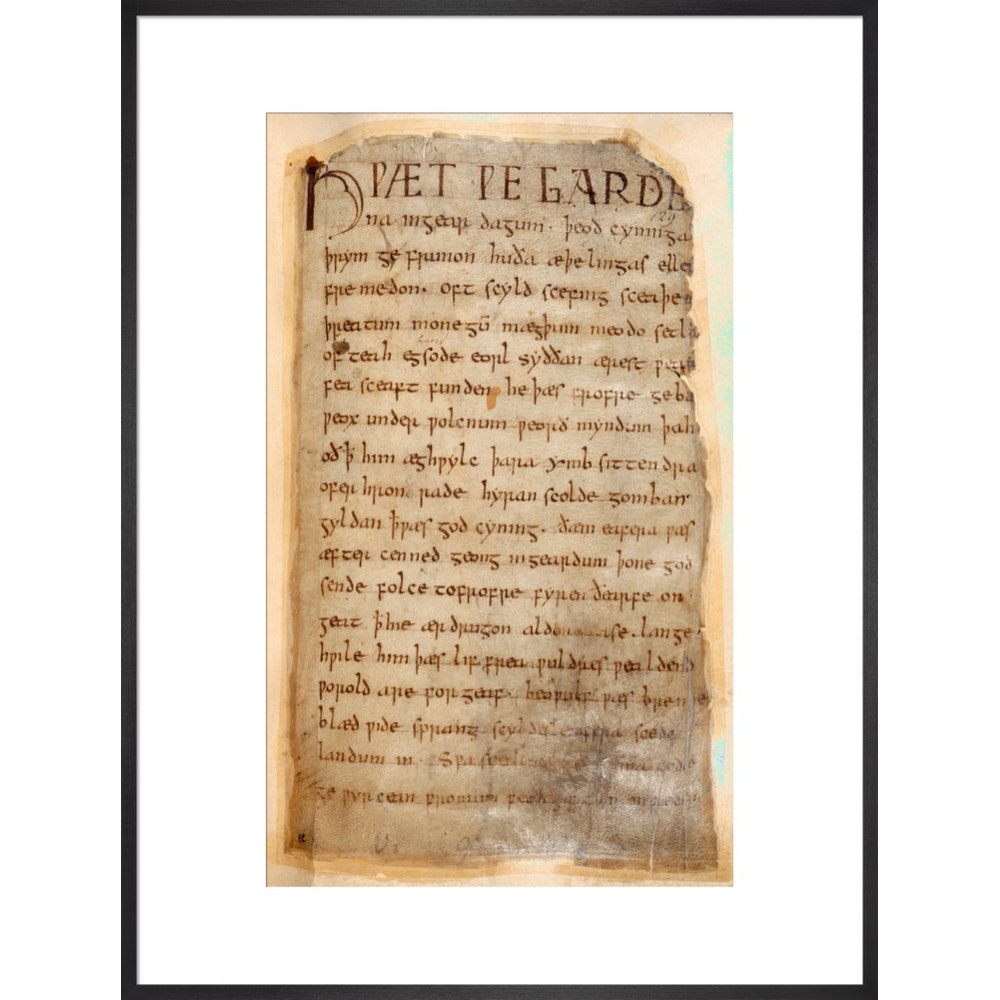 HǷÆT ǷE GARDE
129
na ingear dagum. þeod cyninga
þrym ge frunon huða æþelingas elle
fremedon. oft scyld scefing sceaþe
þreatum monegū mægþum meodo setla
of teah egsode eorl syððan ærest
fea sceaft funden he þæs frofre geba
ƿeox under ƿolcnum ƿeorð myndum þah
oð ꝥ him æghƿylc þara ymb sittendra
ofer hron rade hyran scolde gomban
gyldan ꝥ ƿæs god cyning. ðæm eafera ƿæs
æfter cenned geong ingeardum þone god
sende folce tofrofre fyren ðearfe on
geat ꝥ hie ær drugon lange
hƿile him þæs lif frea ƿuldres ƿealdend
ƿorold are forgeaf. beoƿulf ƿæs breme
blæd ƿide sprang scyldes eafera scede
landum in. Sƿa gode
ge ƿyrcean fromum feoh